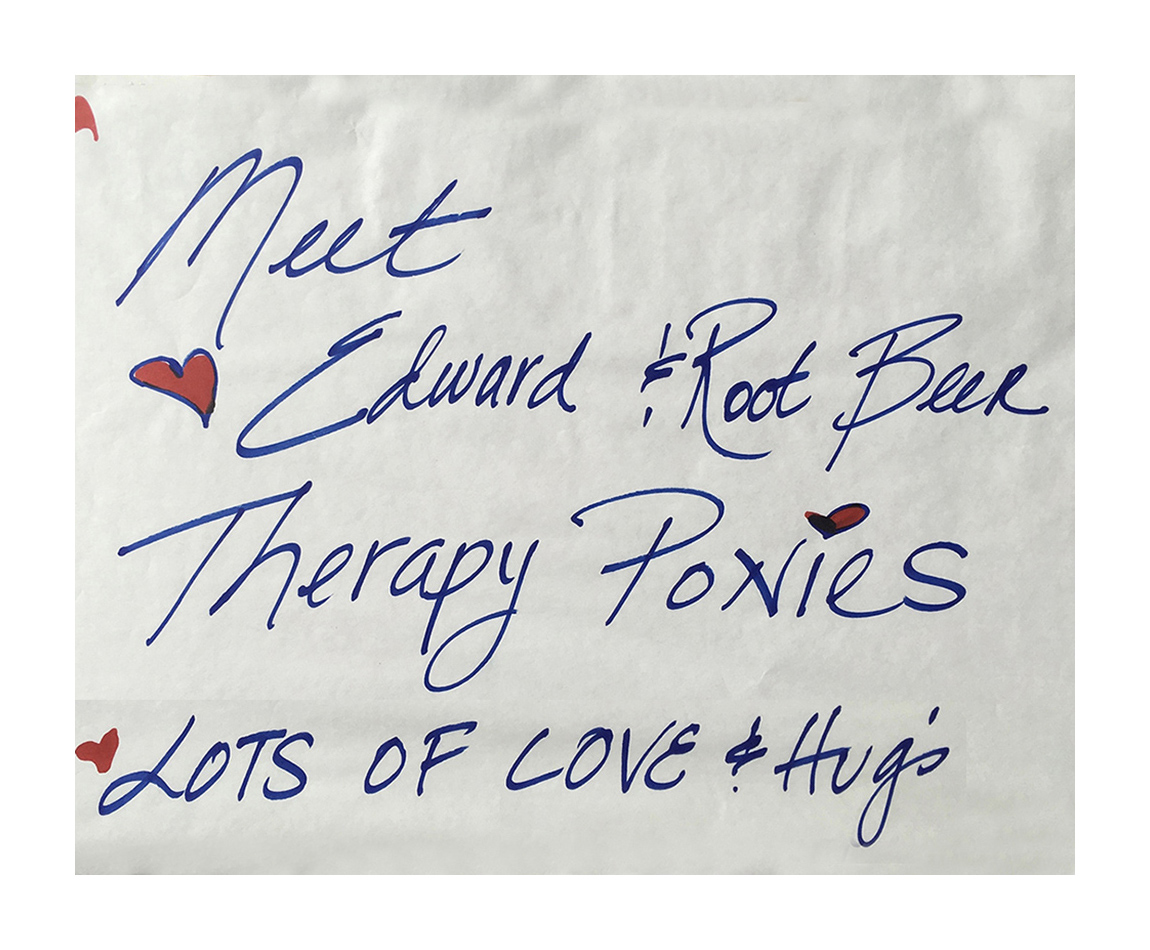 Meet
Edward & Root Beer
Therapy Ponies
LOTS OF LOVE & Hug's